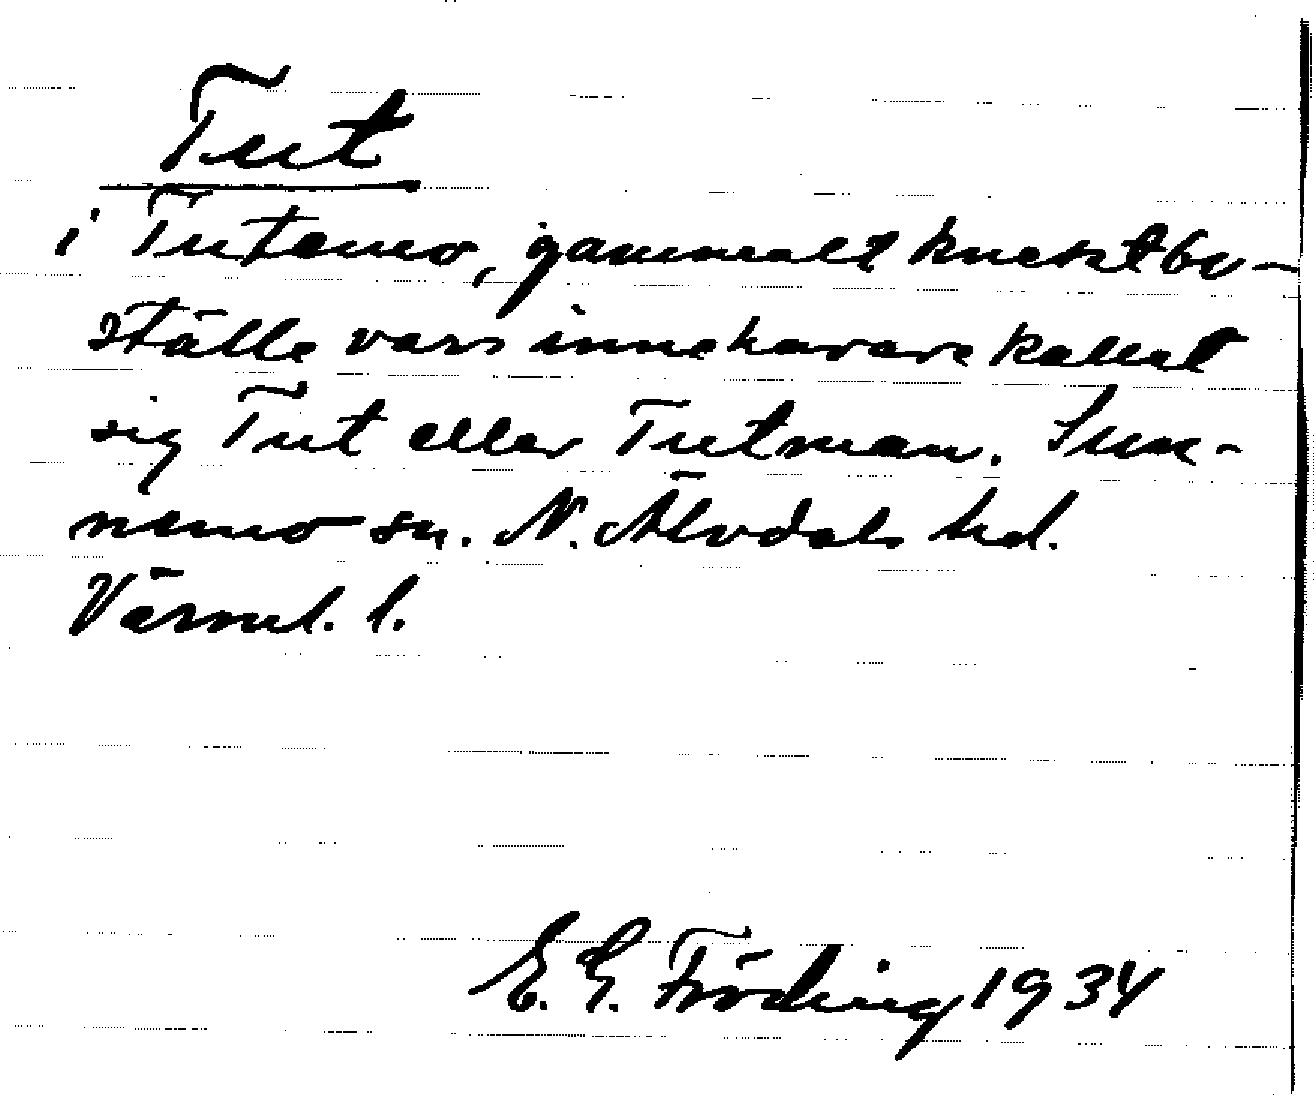 Tut
i Tutemo, gammalt knektbo-
ställe vars innehavare kallat
sig Tut eller Tutman. Sun-
nemo sn. N. Älvdals hd.
Värml. l.
E. G. Fröding 1934